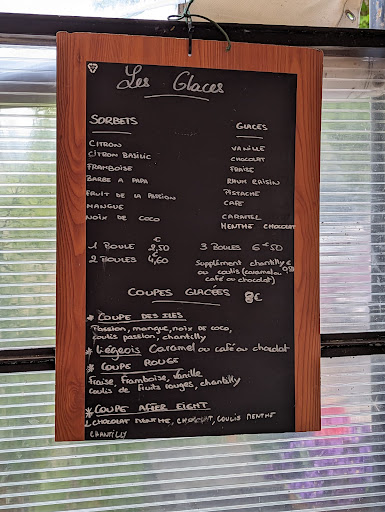 Les Glaces
SORBETS
CITRON
CITRON BASILIC
FRAMBOISE
BARBE A PAPA
FRUIT DE LA PASSION
MANGUE
NOIX DE COCO
GLACES
VANILLE
CHOCOLAT
FRAISE
RHUM RAISIN
PISTACHE
CAFE
CARAMEL
MENTHE CHOCOLAT
1 BOULE 2,50 €
2 BOULES 4,60 €
3 BOULES 6€50
Supplément chantilly
ou coulis (caramel ou
café ou chocolat)
COUPES GLACÉES 8€
* COUPE DES ILES
Passion, mangue, noix de coco,
coulis passion, chantilly
* Liégeois Caramel ou café ou chocolat
* COUPE ROUGE
Fraise, framboise, vanille
coulis de fruits rouges, chantilly
* COUPE AFTER EIGHT
CHOCOLAT MENTHE, CHOCOLAT, COULIS MENTHE
CHANTILLY